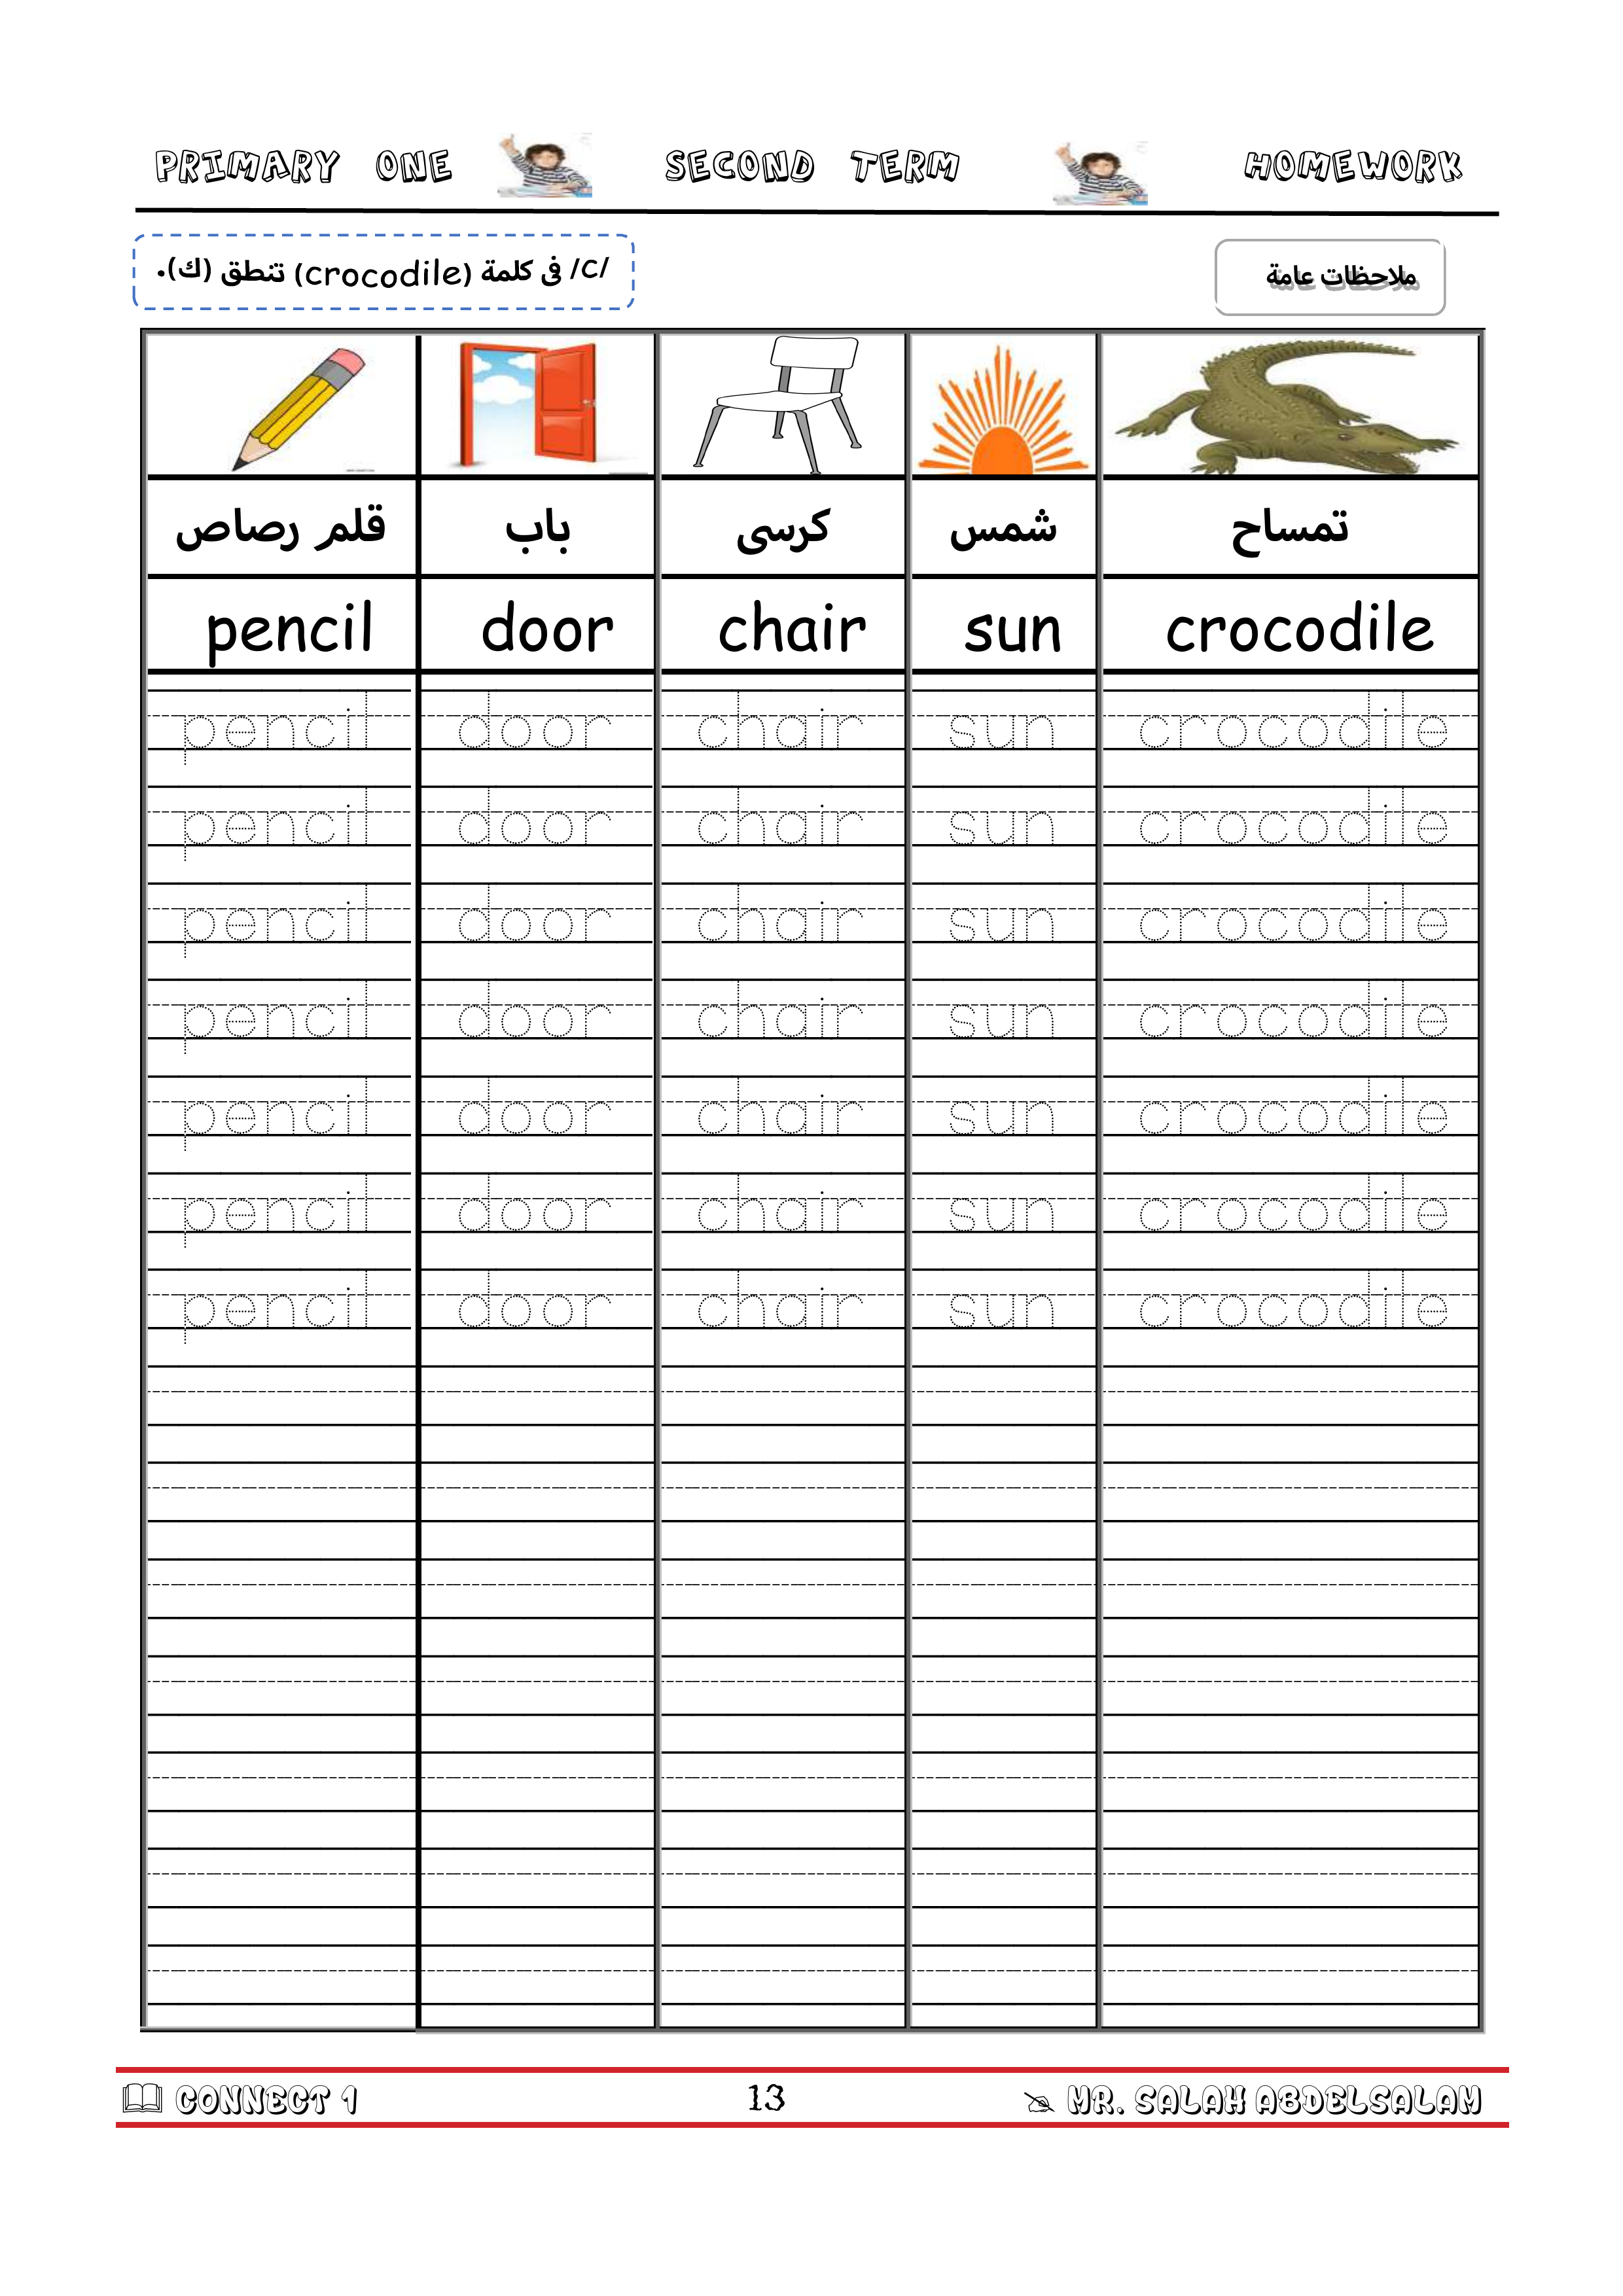 PRIMARY ONE SECOND TERM HOMEWORK
ملاحظات عامة
/c/ فى كلمة (crocodile) تنطق (ك).
قلم رصاص باب كرسى شمس تمساح
pencil door chair sun crocodile
pencil door chair sun crocodile
pencil door chair sun crocodile
pencil door chair sun crocodile
pencil door chair sun crocodile
pencil door chair sun crocodile
pencil door chair sun crocodile
pencil door chair sun crocodile
CONNECT 1 13 MR. SALAH ABDELSALAM